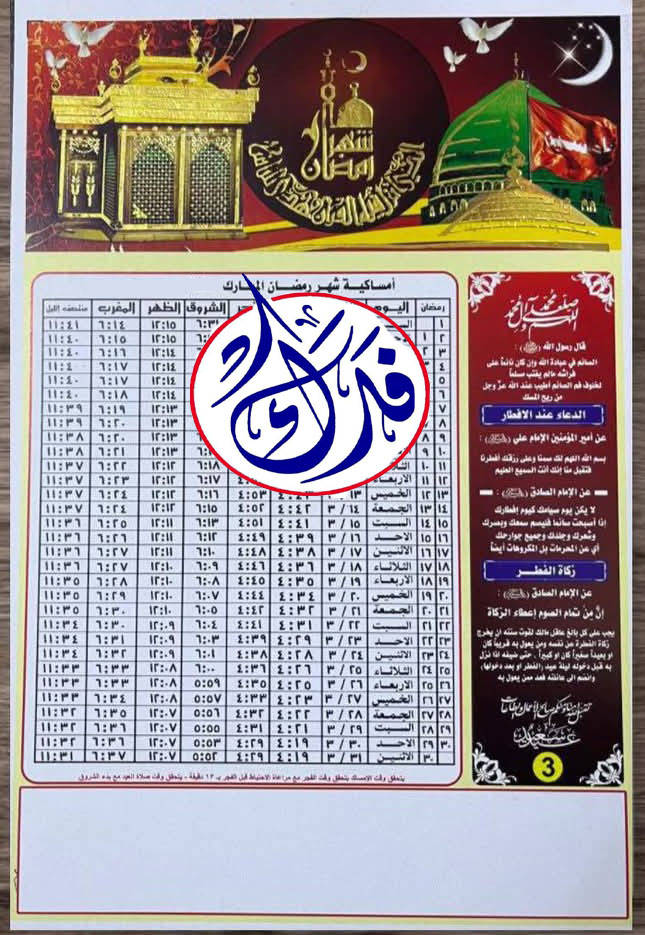 شهر رمضان
أمساكية شهر رمضان المبارك
رمضان اليوم الشروق الظهر المغرب منتصف الليل
١ ٦:٣١ ١٢:١٥ ٦:١٤ ١١:٤١
١٢:١٥ ٦:١٥ ١١:٤٠
١٢:١٤ ٦:١٦ ١١:٤٠
١٢:١٤ ٦:١٧ ١١:٤٠
١٢:١٤ ٦:١٧ ١١:٤٠
١٢:١٤ ٦:١٨ ١١:٤٠
١٢:١٣ ٦:١٩ ١١:٣٩
١٢:١٣ ٦:٢٠ ١١:٣٩
٦:٢٠ ١١:٣٨
٦:٢١ ١١:٣٨
١١ ١٠ الثلاثاء ٦:١٨ ١٢:١٢ ٦:٢٢ ١١:٣٧
١٢ ١١ الاربعاء ٦:١٧ ١٢:١٢ ٦:٢٣ ١١:٣٧
١٣ ١٢ الخميس ٤:٥٣ ٦:١٦ ١٢:١٢ ٦:٢٤ ١١:٣٧
١٤ ١٣ الجمعة ١٤ / ٣ ٤:٤٢ ٤:٥٢ ٦:١٥ ١٢:١٢ ٦:٢٤ ١١:٣٧
١٥ ١٤ السبت ١٥ / ٣ ٤:٤١ ٤:٥١ ٦:١٣ ١٢:١١ ٦:٢٥ ١١:٣٦
١٦ ١٥ الاحد ١٦ / ٣ ٤:٣٩ ٤:٤٩ ٦:١٢ ١٢:١١ ٦:٢٦ ١١:٣٦
١٧ ١٦ الاثنين ١٧ / ٣ ٤:٣٨ ٤:٤٨ ٦:١١ ١٢:١٠ ٦:٢٧ ١١:٣٦
١٨ ١٧ الثلاثاء ١٨ / ٣ ٤:٣٦ ٤:٤٦ ٦:٠٩ ١٢:١٠ ٦:٢٧ ١١:٣٦
١٩ ١٨ الاربعاء ١٩ / ٣ ٤:٣٥ ٤:٤٥ ٦:٠٨ ١٢:١٠ ٦:٢٨ ١١:٣٥
٢٠ ١٩ الخميس ٢٠ / ٣ ٤:٣٤ ٤:٤٤ ٦:٠٧ ١٢:١٠ ٦:٢٩ ١١:٣٥
٢١ ٢٠ الجمعة ٢١ / ٣ ٤:٣٢ ٤:٤٢ ٦:٠٥ ١٢:١٠ ٦:٣٠ ١١:٣٥
٢٢ ٢١ السبت ٢٢ / ٣ ٤:٣١ ٤:٤١ ٦:٠٤ ١٢:٠٩ ٦:٣٠ ١١:٣٤
٢٣ ٢٢ الاحد ٢٣ / ٣ ٤:٢٩ ٤:٣٩ ٦:٠٣ ١٢:٠٩ ٦:٣١ ١١:٣٤
٢٤ ٢٣ الاثنين ٢٤ / ٣ ٤:٢٨ ٤:٣٨ ٦:٠١ ١٢:٠٩ ٦:٣٢ ١١:٣٤
٢٥ ٢٤ الثلاثاء ٢٥ / ٣ ٤:٢٦ ٤:٣٦ ٦:٠٠ ١٢:٠٨ ٦:٣٣ ١١:٣٣
٢٦ ٢٥ الاربعاء ٢٦ / ٣ ٤:٢٥ ٤:٣٥ ٥:٥٩ ١٢:٠٨ ٦:٣٣ ١١:٣٣
٢٧ ٢٦ الخميس ٢٧ / ٣ ٤:٢٣ ٤:٣٣ ٥:٥٧ ١٢:٠٨ ٦:٣٤ ١١:٣٣
٢٨ ٢٧ الجمعة ٢٨ / ٣ ٤:٢٢ ٤:٣٢ ٥:٥٦ ١٢:٠٧ ٦:٣٥ ١١:٣٢
٢٩ ٢٨ السبت ٢٩ / ٣ ٤:٢١ ٤:٣١ ٥:٥٥ ١٢:٠٧ ٦:٣٦ ١١:٣٢
٣٠ ٢٩ الاحد ٣٠ / ٣ ٤:١٩ ٤:٢٩ ٥:٥٣ ١٢:٠٧ ٦:٣٦ ١١:٣٢
٣٠ الاثنين ٣١ / ٣ ٤:١٩ ٤:٢٩ ٥:٥٢ ١٢:٠٧ ٦:٣٧ ١١:٣١
يتحقق وقت الامساك بتحقق وقت الفجر مع مراعاة الاحتياط قبل الفجر بـ ١٣ دقيقة - يتحقق وقت صلاة العيد مع بدء الشروق
فدك
اللهم صل على محمد وآل محمد
قال رسول الله (ﷺ):
الصائم في عبادة الله وإن كان نائماً على
فراشه مالم يغتب مسلماً
لخلوف فم الصائم أطيب عند الله عز وجل
من ريح المسك
الدعاء عند الافطار
عن أمير المؤمنين الإمام علي
بسم الله اللهم لك صمنا وعلى رزقك أفطرنا
فتقبل منا إنك أنت السميع العليم
عن الإمام الصادق
لا يكن يوم صيامك كيوم إفطارك
إذا أصبحت صائماً فليصم سمعك وبصرك
وشعرك وجلدك وجميع جوارحك
أي عن المحرمات بل المكروهات أيضاً
زكاة الفطر
عن الإمام الصادق
إنَّ مِنْ تمام الصوم إعطاء الزكاة
يجب على كل بالغ عاقل مالك لقوت سنته ان يخرج
زكاة الفطرة عن نفسه ومن يعول به قريباً كان
او بعيداً صغيراً كان او كبيراً . حتى ضيفه اذا نزل
به قبل دخوله ليلة عيد (الفطر او بعد دخولها)
وانضم الى عائلته فعد ممن يعول به
3